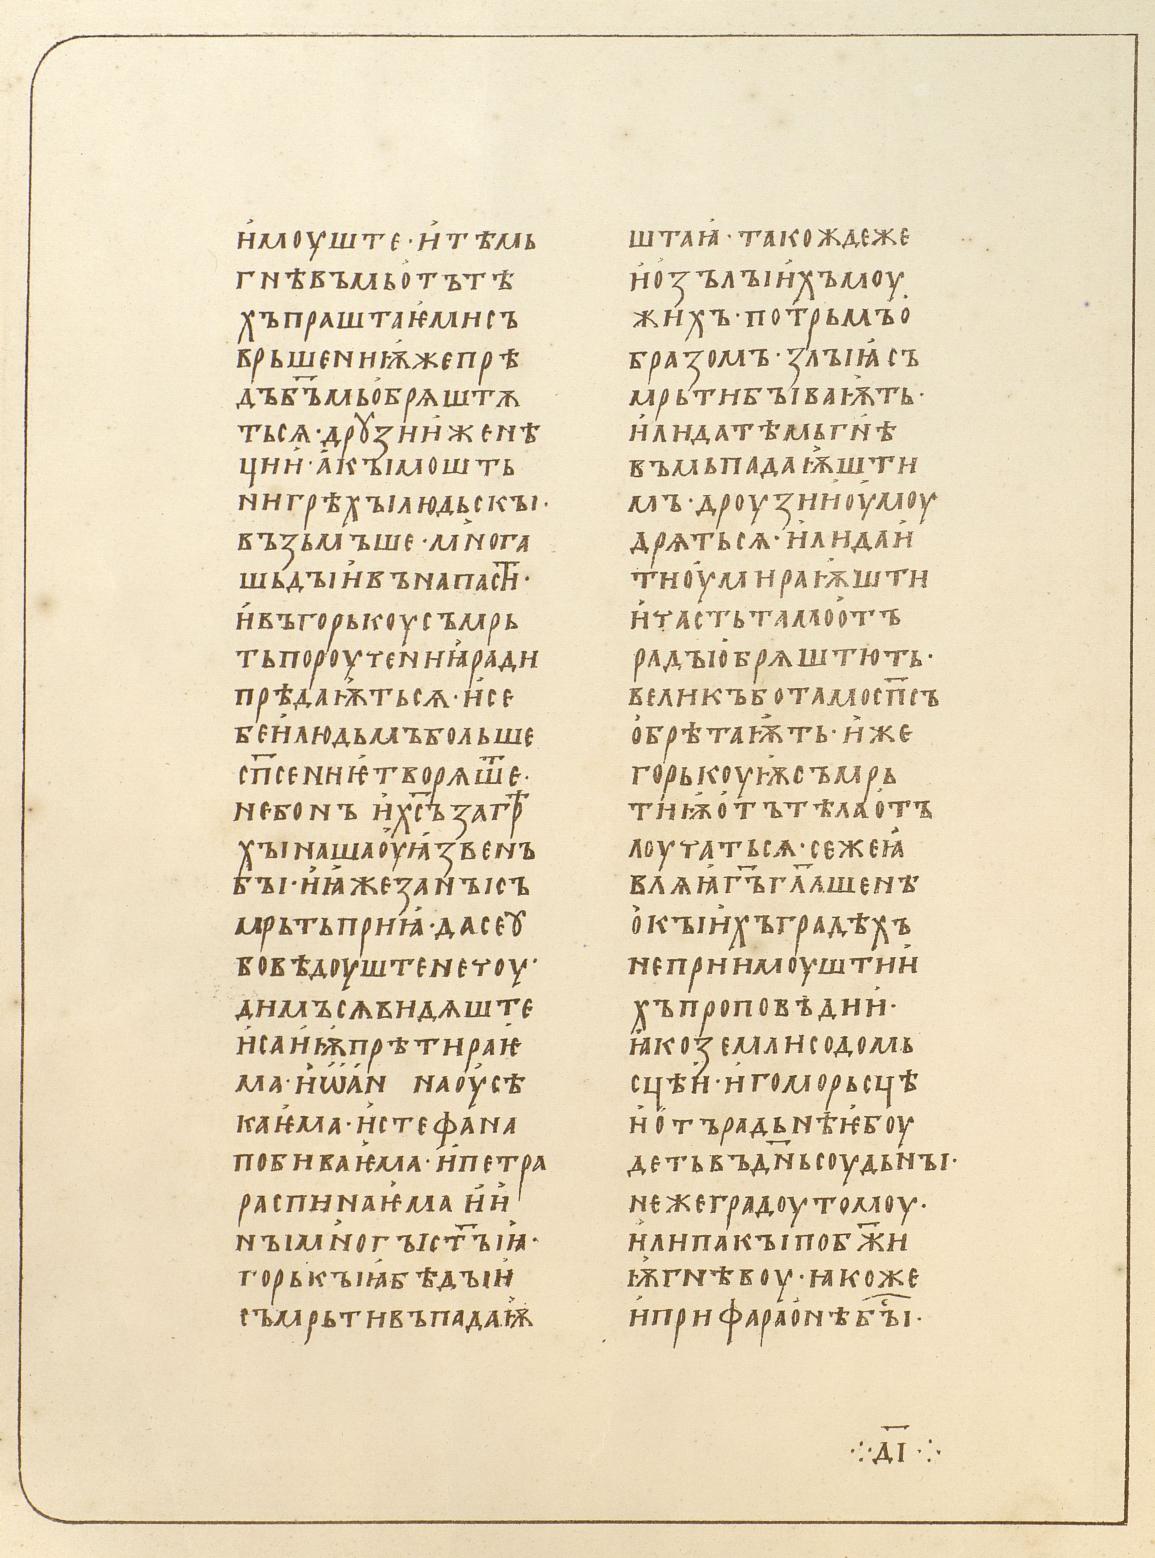 имоуште · и тѣмь
гнѣвъмь отътѣ
хъ праштаѥми съ
врьшениѭ же прѣ
дъ б҃ъмь обрѧштѫ
тьсѧ · дрꙋзии же нѣ
ции · акꙑ мошть
ни грѣхꙑ людьскꙑ ·
възьмъше · многа
шьдꙑ и въ напасти ·
и въ горькоу съмрь
ть пороученьꙗ ради
прѣдаѭтьсѧ · и се
бе и людьмъ больше
сп҃сениѥ творѧште ·
не бо нъ и х҃съ за грѣ
хꙑ наша оуꙗзвенъ
бꙑ · и ꙗже за нꙑ съ
мрьть приꙗ · да се ꙋ
бо вѣдоуште не чоу
димъ сѧ видѧште
исаиѭ прѣтираѥ
ма · и ѡан на оусѣ
каѥма · и стефана
побиваѥма · и петра
распинаѥма и и
нꙑ многꙑ ст҃ꙑꙗ ·
горькꙑꙗ бѣдꙑ и
съмрьти въпадаѭ
штаꙗ · такожде же
и о зълꙑихъ моу
жихъ · по трьмъ о
бразомъ · злꙑꙗ съ
мрьти бꙑваѭть ·
или да тѣмь гнѣ
въмь падаѭшти
мъ · дроузии оумоу
дрѧтьсѧ · или да и
ти оумираѭшти
и часть тамо от
радꙑ обрѧштють ·
великъ бо тамо сп҃съ
обрѣтаѭть · иже
горькоуѭ съмрь
тиѭ отъ тѣла отъ
лоучатьсѧ · се же ꙗ
влѧꙗ г҃ъ гл҃аше нѣ
о кꙑихъ градѣхъ
не приимоуштии
хъ проповѣдии ·
ꙗко земли содомь
сцѣи · и гоморьсцѣ
и отъраднѣѥ боу
деть въ дн҃ь соудьнꙑ ·
неже градоу томоу ·
или пакꙑ по бж҃и
ѭ гнѣвоу · ꙗкоже
и при фараонѣ бꙑ ·
·:· д҃і ·:·